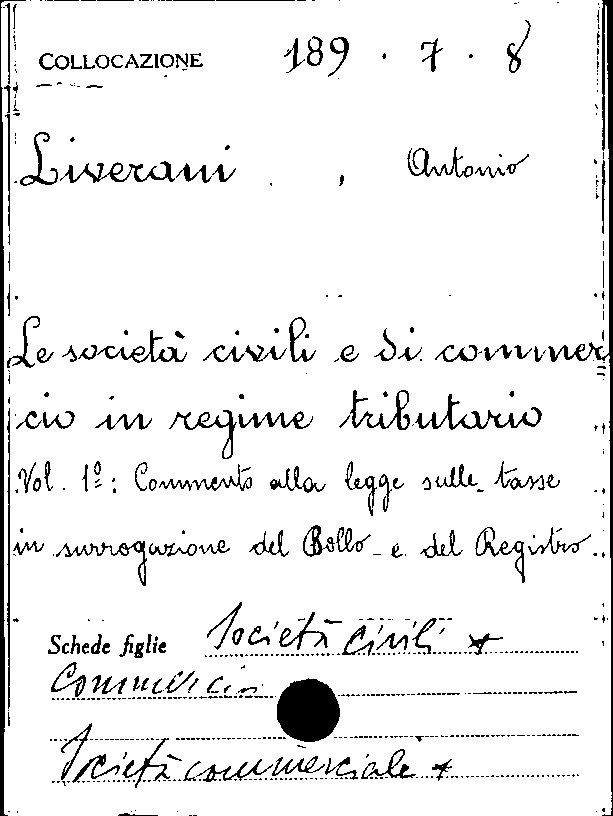 COLLOCAZIONE 189 . 7 . 8
Liverani , Antonio
Le società civili e di commer
cio in regime tributario
Vol. 1º: Commento alla legge sulle tasse
in surrogazione del Bollo e del Registro
Schede figlie Società civili *
Commercio
Società commerciale *